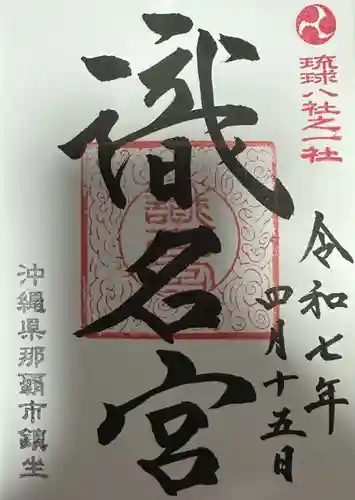 琉球八社之一社
令和七年
四月十五日
識名宮
沖縄県那覇市鎮坐